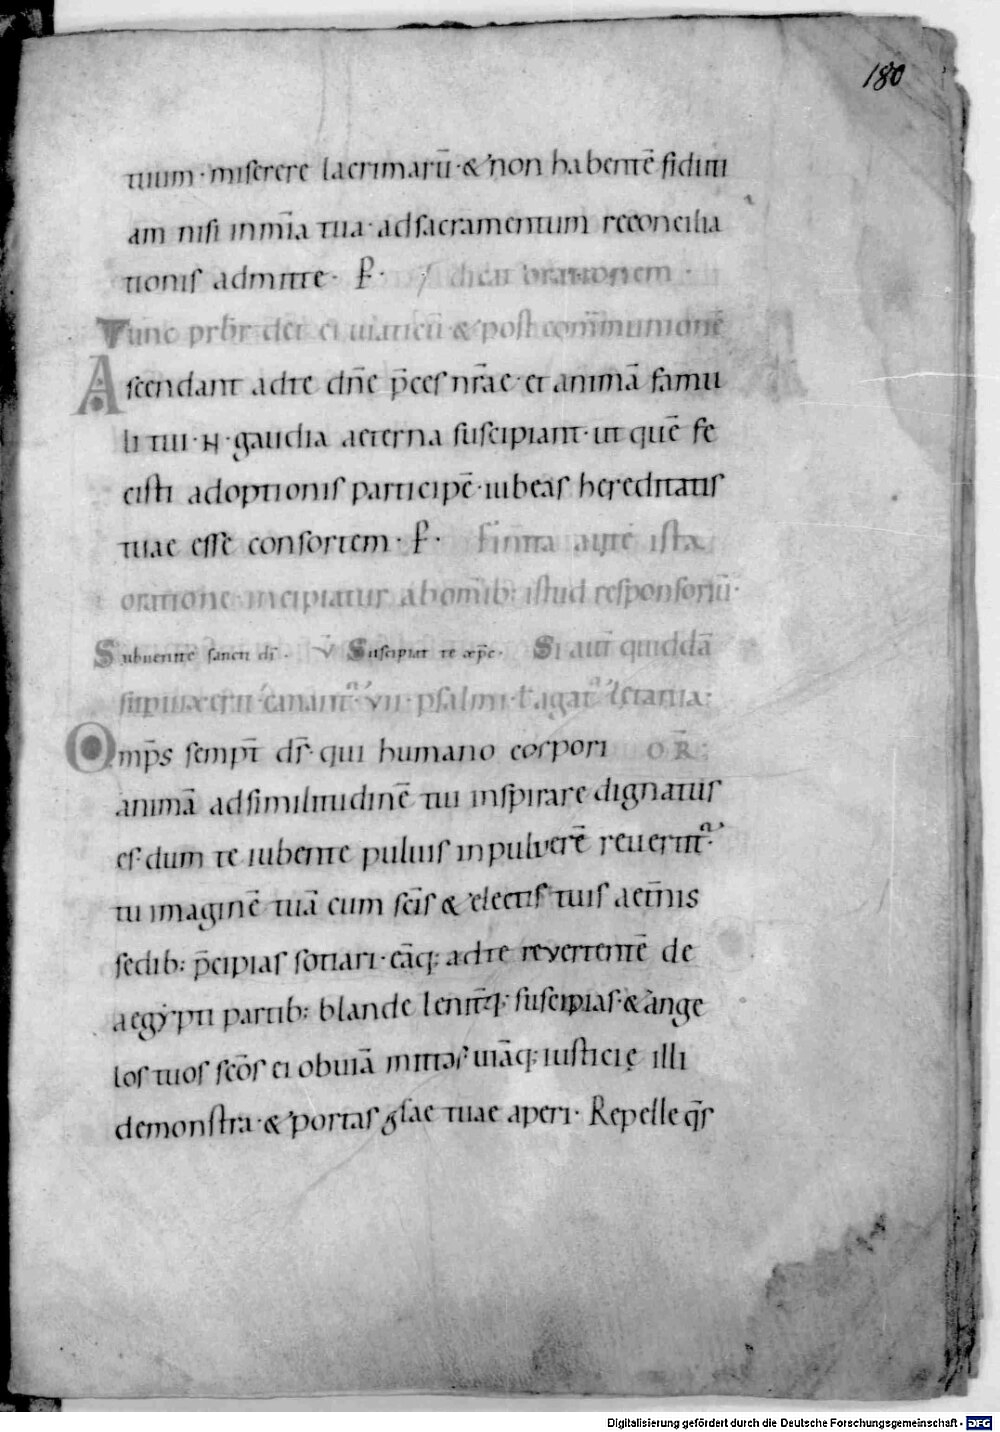 180
tuum · miserere lacrimarū · & non habentē fiduti
am nisi in mīa tua · ad sacramentum reconcilia
tionis admitte · P · dicat orationem ·
Tunc prƀr det ei uiaticū & post com̄munionē
Ascendant ad te dn̄e p̄ces nr̄ae · et animā famu
li tui · N · gaudia aeterna suscipiant · ut quē fe
cisti adoptionis participē · iubeas hereditatis
tuae esse consortem · P · Finita autē ista
oratione incipiatur ab om̄ib: istud responsoriū ·
Subuenite sancti dī · V Suscipiat te xp̄c · Si aut̄ quiddā
supuixerit canant᷑ VII · psalmi ł agat᷑ letania ·
Omp̄s sempt̄ ds̄ · qui humano corpori OR̄:
animā ad similitudinē tui inspirare dignatus
es · dum te iubente puluis in puluerē reuertit᷑ ·
tu imaginē tuā cum sc̄is & electis tuis aet̄nis
sedib: p̄cipias sotiari · eāq; ad te revertentē de
aegypti partib: blande lenit̄q; suscipias · & ange
los tuos sc̄os ei obuiā mittas · uiāq; iusticię illi
demonstra · & portas glae tuae aperi · Repelle q̄s
Digitalisierung gefördert durch die Deutsche Forschungsgemeinschaft - DFG